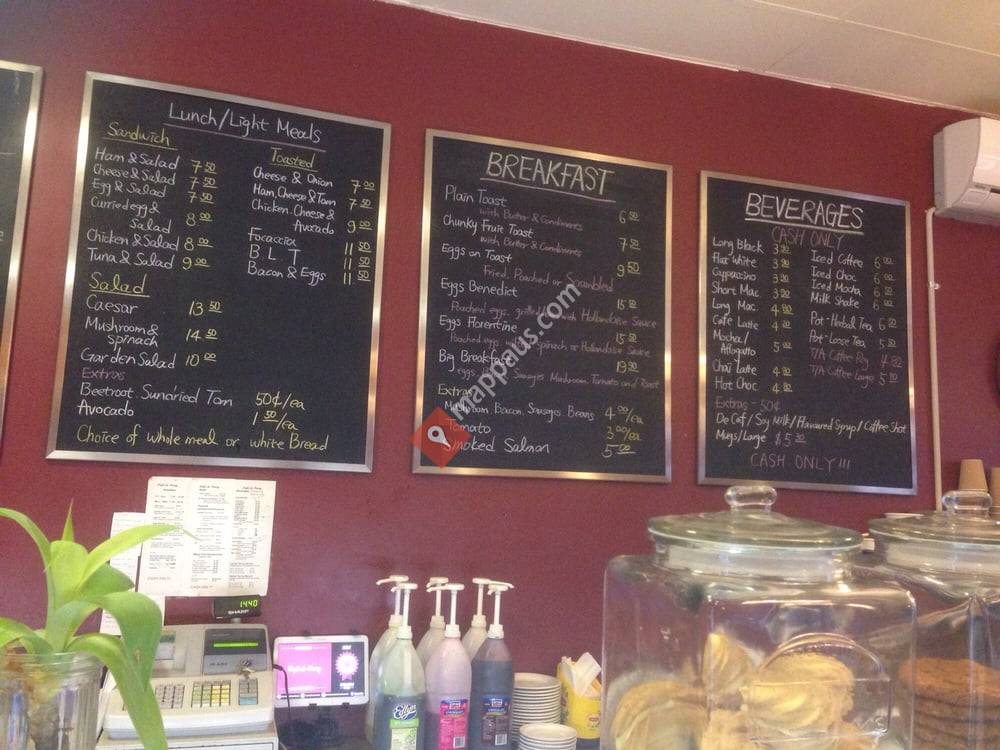 Lunch/Light Meals
Sandwich
Ham & Salad 7 50
Cheese & Salad 7 50
Egg & Salad 7 50
Curried egg &
Salad 8 00
Chicken & Salad 8 00
Tuna & Salad 9 00
Toasted
Cheese & Onion 7 00
Ham, Cheese & Tom 7 50
Chicken. Cheese &
Avocado 9 00
Focaccia
B L T 11 50
Bacon & Eggs 11 50
Salad
Caesar 13 50
Mushroom &
spinach 14 50
Garden Salad 10 00
Extras
Beetroot. Sundried Tom 50¢/ea
Avocado 1 50/ea
Choice of whole meal or white Bread
BREAKFAST
Plain Toast
with Butter & Condiments 6 50
Chunky Fruit Toast
with Butter & Condiments 7 50
Eggs on Toast 9 50
Fried, Poached or Scrambled
Eggs Benedict 15 50
Poached eggs, grilled with Hollandaise Sauce
Eggs Florentine 15 50
Poached eggs, with Spinach or Hollandaise Sauce
Big Breakfast 19 50
eggs, Sausages Mushroom Tomato and Toast
Extras
Mushroom, Bacon, Sausages, Beans 4 00/ea
Tomato 3 00/ea
Smoked Salmon 5 00
BEVERAGES
CASH ONLY
Long Black
Flat white
Cappuccino
Short Mac
Long Mac
Cafe Latte
Mocha/
Affogatto
Chai Latte
Hot Choc
Iced Coffee
Iced Choc
Iced Mocha
Milk Shake
Pot-Herbal Tea
Pot-Loose Tea
T/A Coffee Reg
T/A Coffee Large
Extras - 50¢
De Caf/Soy Milk/Flavoured Syrup/Coffee Shot
Mugs/Large $5
CASH ONLY!!!
mapaplus.com
1440
SHARP